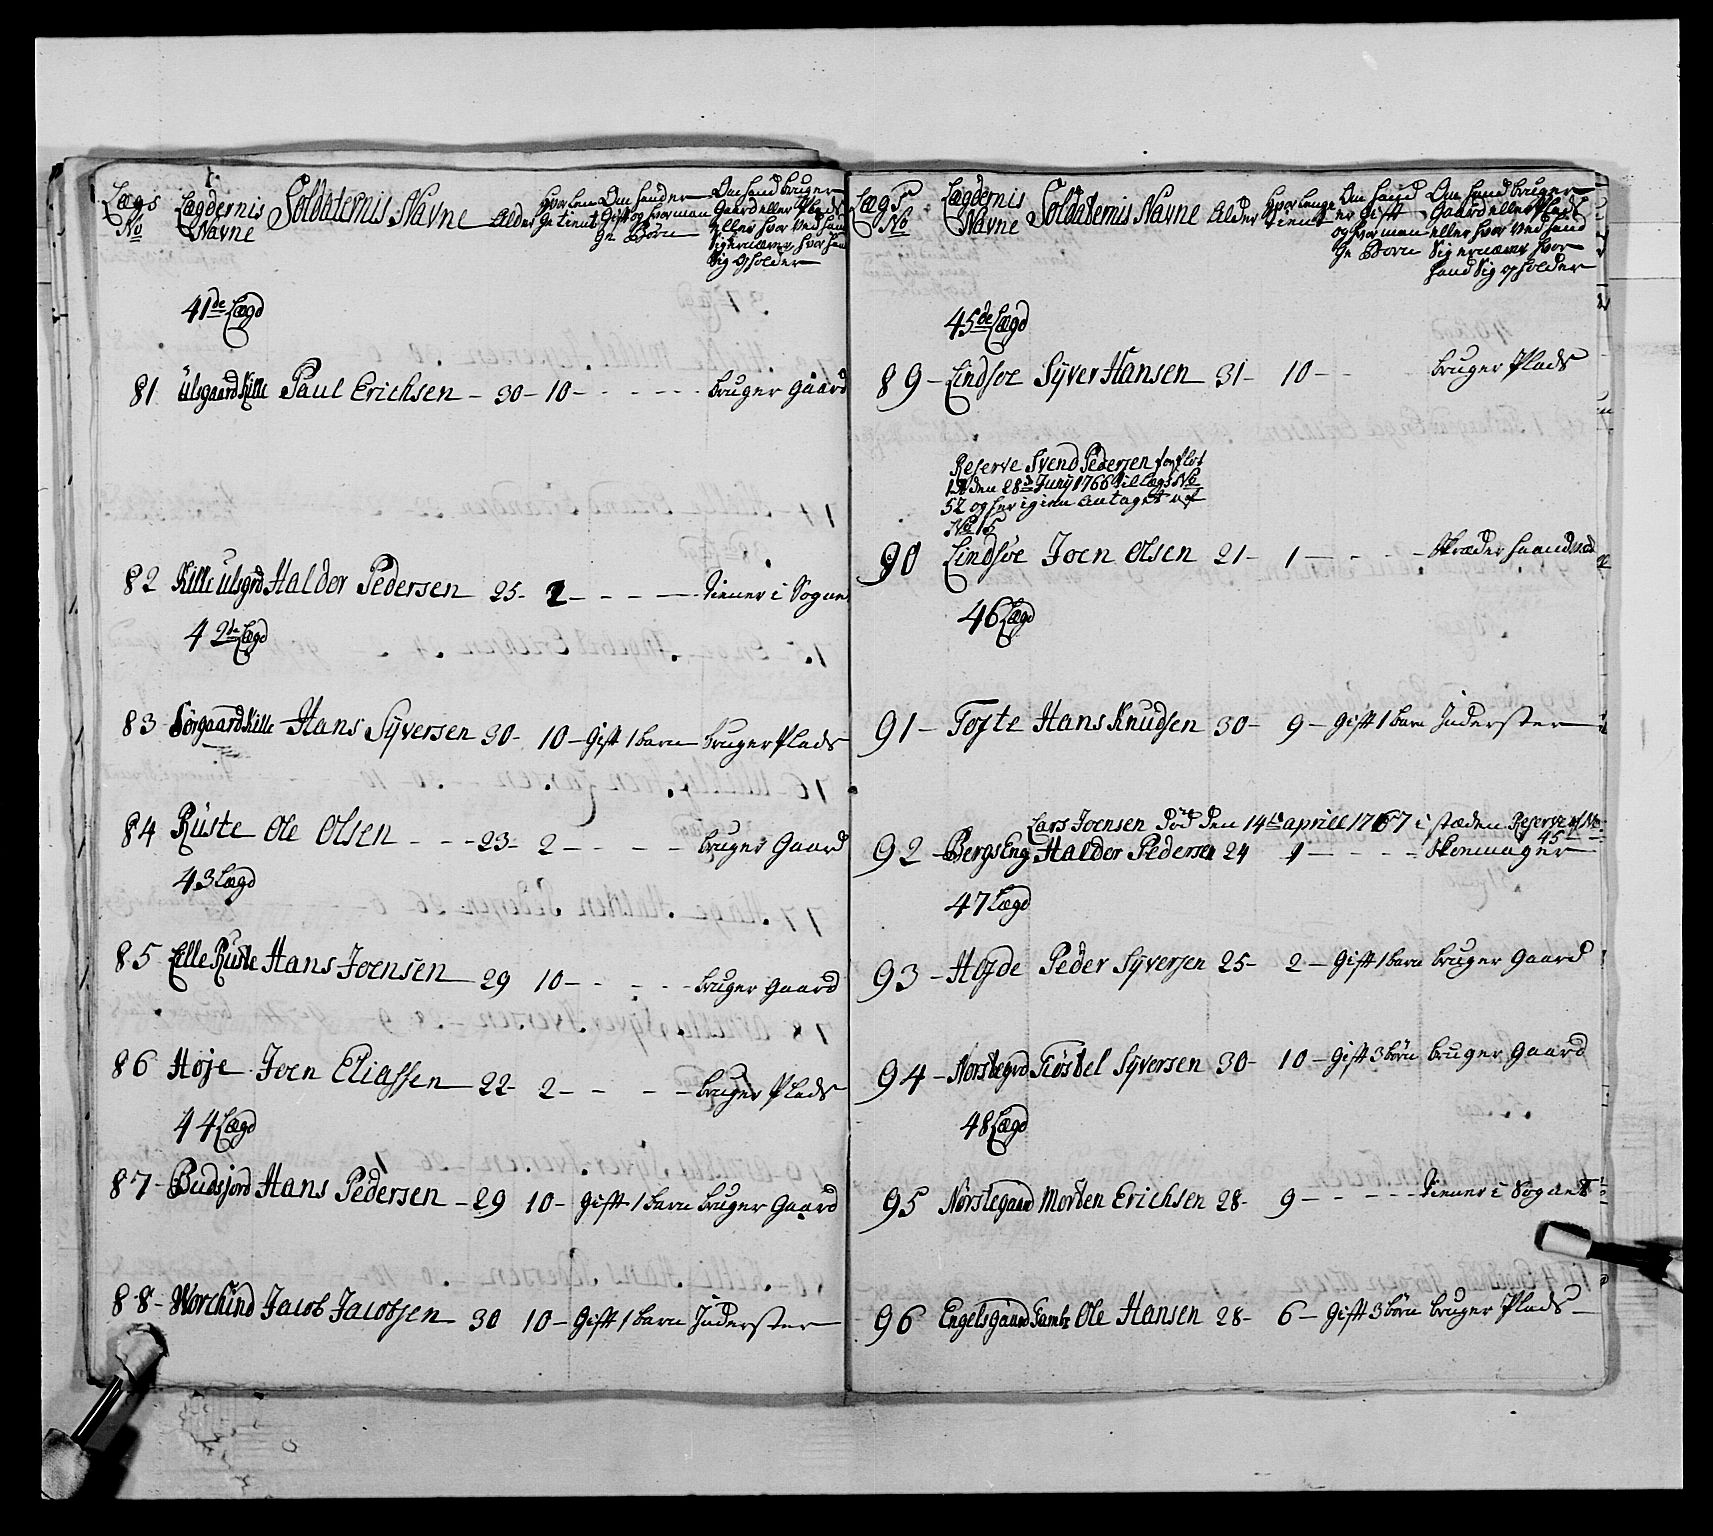 Lægs No
Lægdernis Navne
Soldaternis Navne
Alder
Hvor lenge tient
Om hand er Gift og hvor mange Børn
Om hand bruger
Gaard eller Plads
eller hvor ved hand
Sig ernærer, hvor hand
Sig opholder
41de Lægd
81 Ulsgaard Kille Paul Erichsen - 30 - 10 - - - - - bruger Gaard
82 Kille Ulsgrd Haldor Pedersen 25 - 2 - - - - tiener i Sogne
42de Lægd
83 Sørgaard Kille Hans Syversen 30 - 10 - Gift 1 barn bruger Plads
84 Rüste Ole Olsen - - - 23 - 2 - - - - bruger Gaard
43 Lægd
85 Lille Rüste Hans Joensen 29 10 - - - - bruger Gaard
86 Høje Joen Eliassen 22 - 2 - - - - bruger Plads
44 Lægd
87 - Budsjord Hans Pedersen - 29 10 - Gift 1 barn bruger Gaard
88 - Worckind Jacob Jacobsen - 30 10 - Gift 1 barn Inderster
Lægs No
Lægdernis Navne
Soldaternis Navne
Alder
Hvor lenge tient
Om hand er Gift og hvor mange Børn
Om hand bruger
Gaard eller Plads
eller hvor ved hand
Sig ernærer hvor
hand Sig opholder
45de Lægd
89 - Lindsøe Syver Hansen 31 - 10 - - bruger Plads
Reserve Svend Pedersen forflöt
den 28de Juny 1766 til Lægs No
52 og her igien antaget af
No 15
90 Lindsøe Joen Olsen 21 - 1 - - - - Skræder haandværk
46 Lægd
91 - Tofte Hans Knudsen 30 - 9 - Gift 1 barn Inderster
Lars Joensen Död den 14de aprill 1767 i stæden Reserve af No 45
92 - Bergs Eng Haldor Pedersen 24 1 - - - - Skoemager
47 Lægd
93 - Hofde Peder Syversen 25 - 2 - Gift 1 barn bruger Gaard
94 - Norstegrd Tiøstel Syversen 30 - 10 - Gift 3 börn bruger Gaard
48 Lægd
95 Nørstegaard Morden Erichsen 28 - 9 - - - - - tiener i Sognet
96 Engelsgaard Ole Hansen 28 - 6 - Gift 3 börn bruger Plads